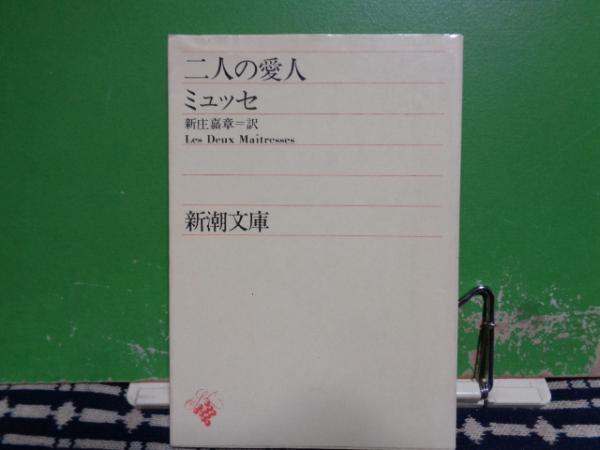 二人の愛人
ミュッセ
新庄嘉章=訳
Les Deux Maîtresses
新潮文庫